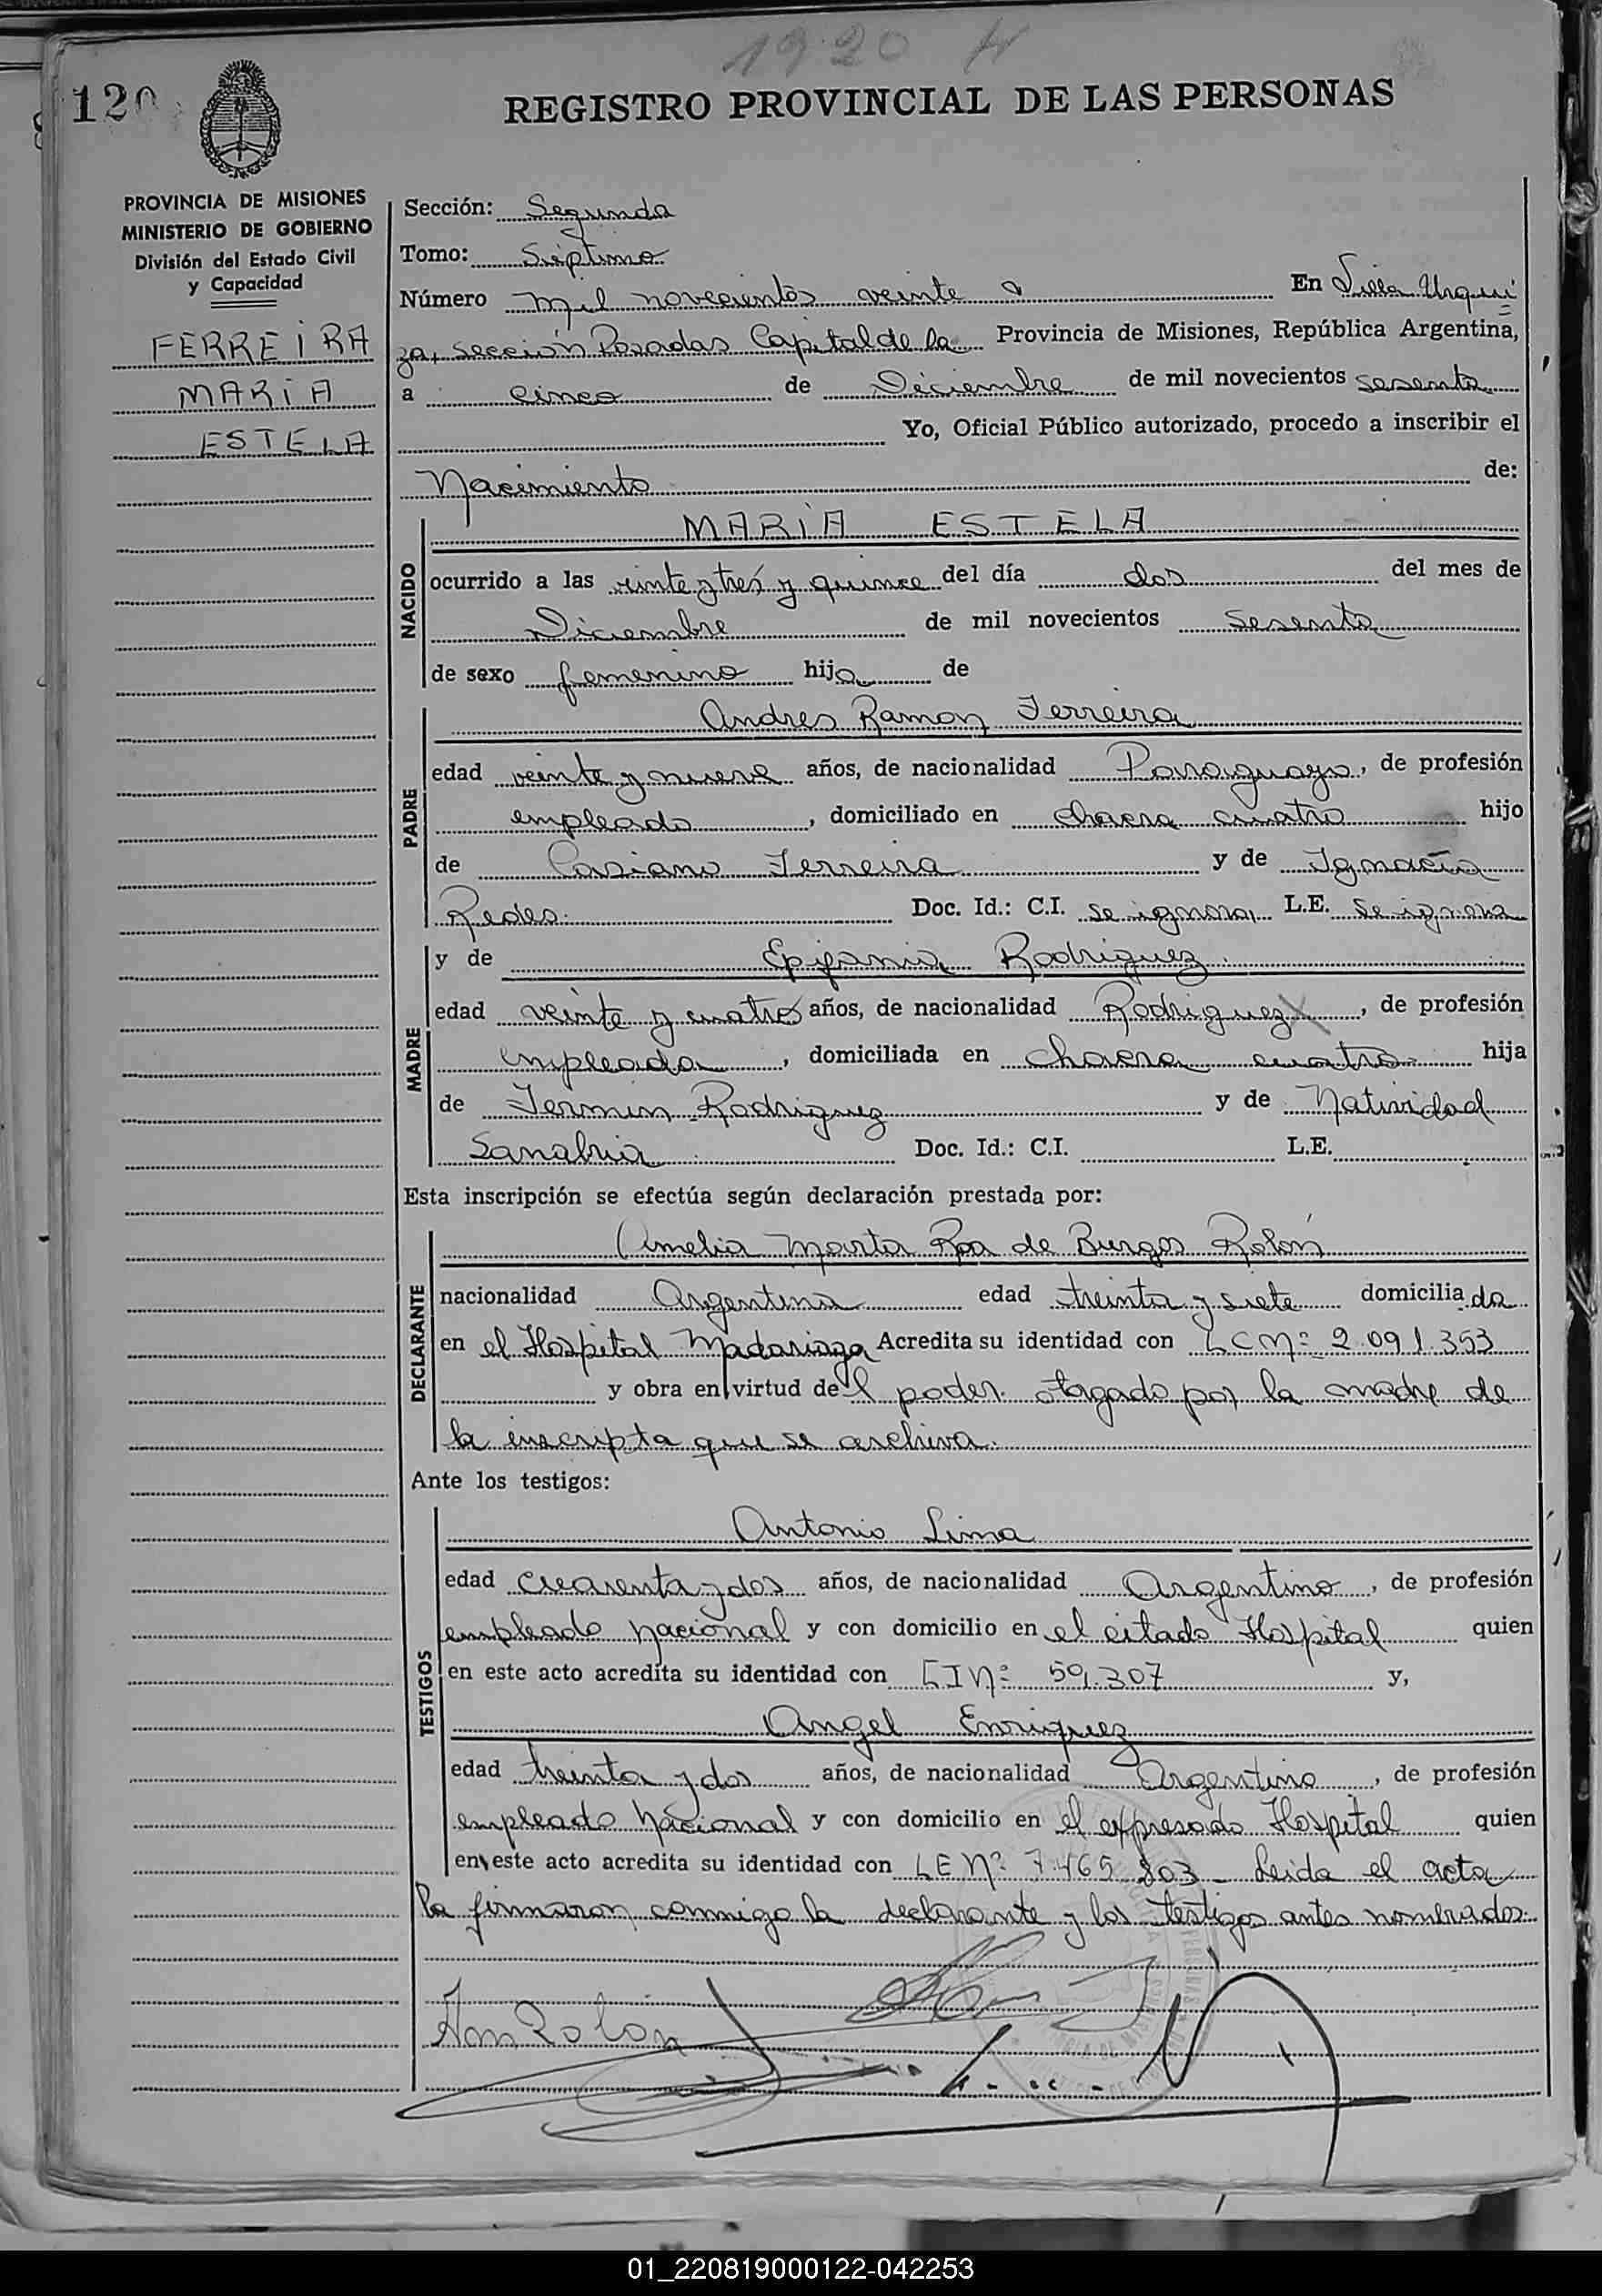 1920
120
REGISTRO PROVINCIAL DE LAS PERSONAS
PROVINCIA DE MISIONES
MINISTERIO DE GOBIERNO
División del Estado Civil
y Capacidad
FERREIRA
MARIA
ESTELA
Sección: Segunda
Tomo: Séptimo
Número mil novecientos veinte En Villa Urqui
za, sección Posadas Capital de la Provincia de Misiones, República Argentina,
a cinco de Diciembre de mil novecientos sesenta
Yo, Oficial Público autorizado, procedo a inscribir el
Nacimiento de:
NACIDO
MARIA ESTELA
ocurrido a las veinte y tres y quince del día dos del mes de
Diciembre de mil novecientos sesenta
de sexo femenino hija de
PADRE
Andres Ramon Ferreira
edad veinte y nueve años, de nacionalidad Paraguayo, de profesión
empleado, domiciliado en chacra cuatro hijo
de Casiano Ferreira y de Ignacia
Redes. Doc. Id.: C.I. se ignora L.E. se ignora
MADRE
y de Epifania Rodriguez
edad veinte y cuatro años, de nacionalidad Rodriguez, de profesión
empleada, domiciliada en chacra cuatro hija
de Fermin Rodriguez y de Natividad
Sanabria Doc. Id.: C.I. L.E.
Esta inscripción se efectúa según declaración prestada por:
DECLARANTE
Amelia Marta Roa de Burgos Rolón
nacionalidad Argentina edad treinta y siete domiciliada
en el Hospital Madariaga Acredita su identidad con LC Nº 2.091.353
y obra en virtud del poder otorgado por la madre de
la inscripta que se archiva.
Ante los testigos:
TESTIGOS
Antonio Lima
edad cuarenta y dos años, de nacionalidad Argentino, de profesión
empleado nacional y con domicilio en el citado Hospital quien
en este acto acredita su identidad con CI Nº 59.307 y,
Angel Enriquez
edad treinta y dos años, de nacionalidad Argentino, de profesión
empleado nacional y con domicilio en el expresado Hospital quien
en este acto acredita su identidad con LE Nº 7.465.803 - Leida el acta
la firmaron conmigo la declarante y los testigos antes nombrados.
Rolon
01_220819000122-042253